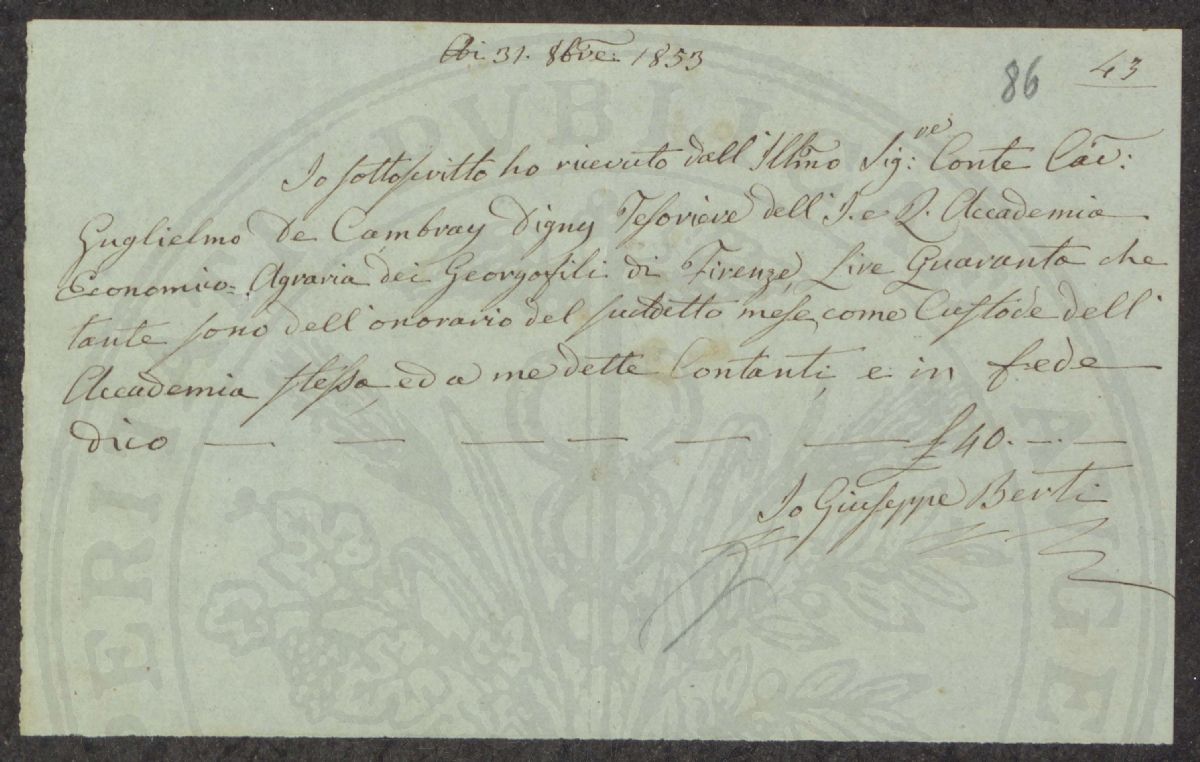 Adi 31. 8bre 1853
86
43
Io sottoscritto ho ricevuto dall'Illmo Sig:re Conte Cav:
Guglielmo De Cambray Digny Tesoriere dell'I. e R. Accademia
Economico=Agraria dei Georgofili di Firenze, Lire Quaranta che
tante sono dell'onorario del suddetto mese, come Custode dell'
Accademia stessa, ed a me dette Contanti, e in fede
dico — — — — — — £ 40. — —
Io Giuseppe Berti